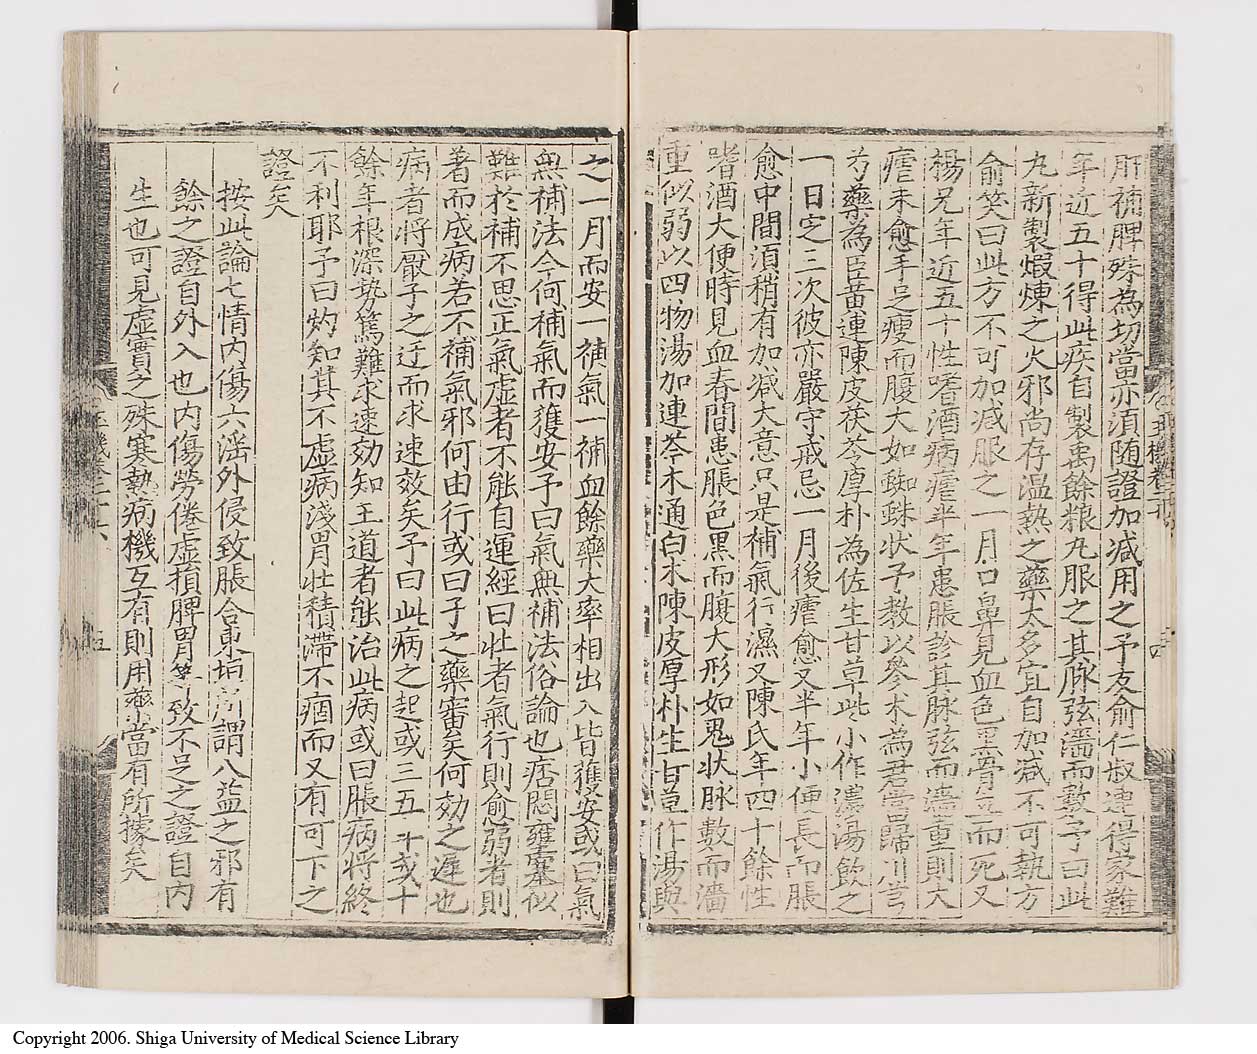 肝補脾殊為切當亦須随證加减用之予友俞仁叔連得家難
年近五十得此疾自製禹餘粮丸服之其脉弦濇而數予曰此
丸新製煆煉之火邪尚存温熱之藥太多宜自加减不可執方
俞笑曰此方不可加减服之一月口鼻見血色黑骨立而死又
楊兄年近五十性嗜酒病瘧半年患脹診其脉弦而濇重則大
瘧未愈手足瘦而腹大如蜘蛛状予教以參术為君當歸川芎
芍藥為臣黄連陳皮茯苓厚朴為佐生甘草些小作濃湯飲之
一日定三次彼亦嚴守戒忌一月後瘧愈又半年小便長而脹
愈中間湏稍有加减大意只是補氣行濕又陳氏年四十餘性
嗜酒大便時見血春間患脹色黒而腹大形如鬼状脉數而濇
重似弱以四物湯加連芩木通白术陳皮厚朴生甘草作湯與
之一月而安一補氣一補血餘藥大率相出入皆獲安或曰氣
無補法今何補氣而獲安予曰氣無補法俗論也痞悶壅塞似
難於補不思正氣虚者不能自運經曰壮者氣行則愈弱者則
著而成病若不補氣邪何由行或曰子之藥審矣何効之遲也
病者將厭子之迂而求速效矣予曰此病之起或三五年或十
餘年根深勢篤難求速効知王道者能治此病或曰脹病將終
不利耶予曰灼知其不虚病淺胃壮積滞不痼而又有可下之
證矣
按此論七情内傷六滛外侵致脹合東垣所謂八益之邪有
餘之證自外入也内傷勞倦虚損脾胃等致不足之證自内
生也可見虚實之殊寒熱病機互有則用藥當有所據矣
Copyright 2006. Shiga University of Medical Science Library